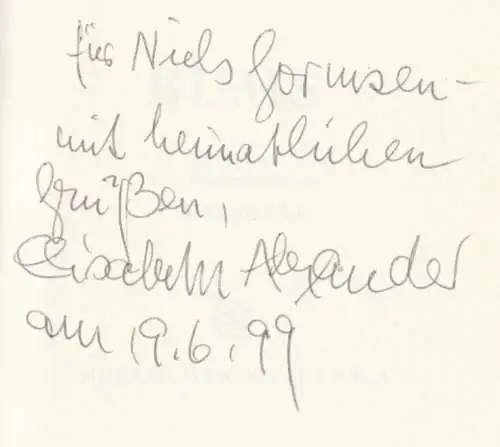 für Niels Gormsen –
mit heimatlichen
Grüßen,
Elisabeth Alexander
am 19.6.99